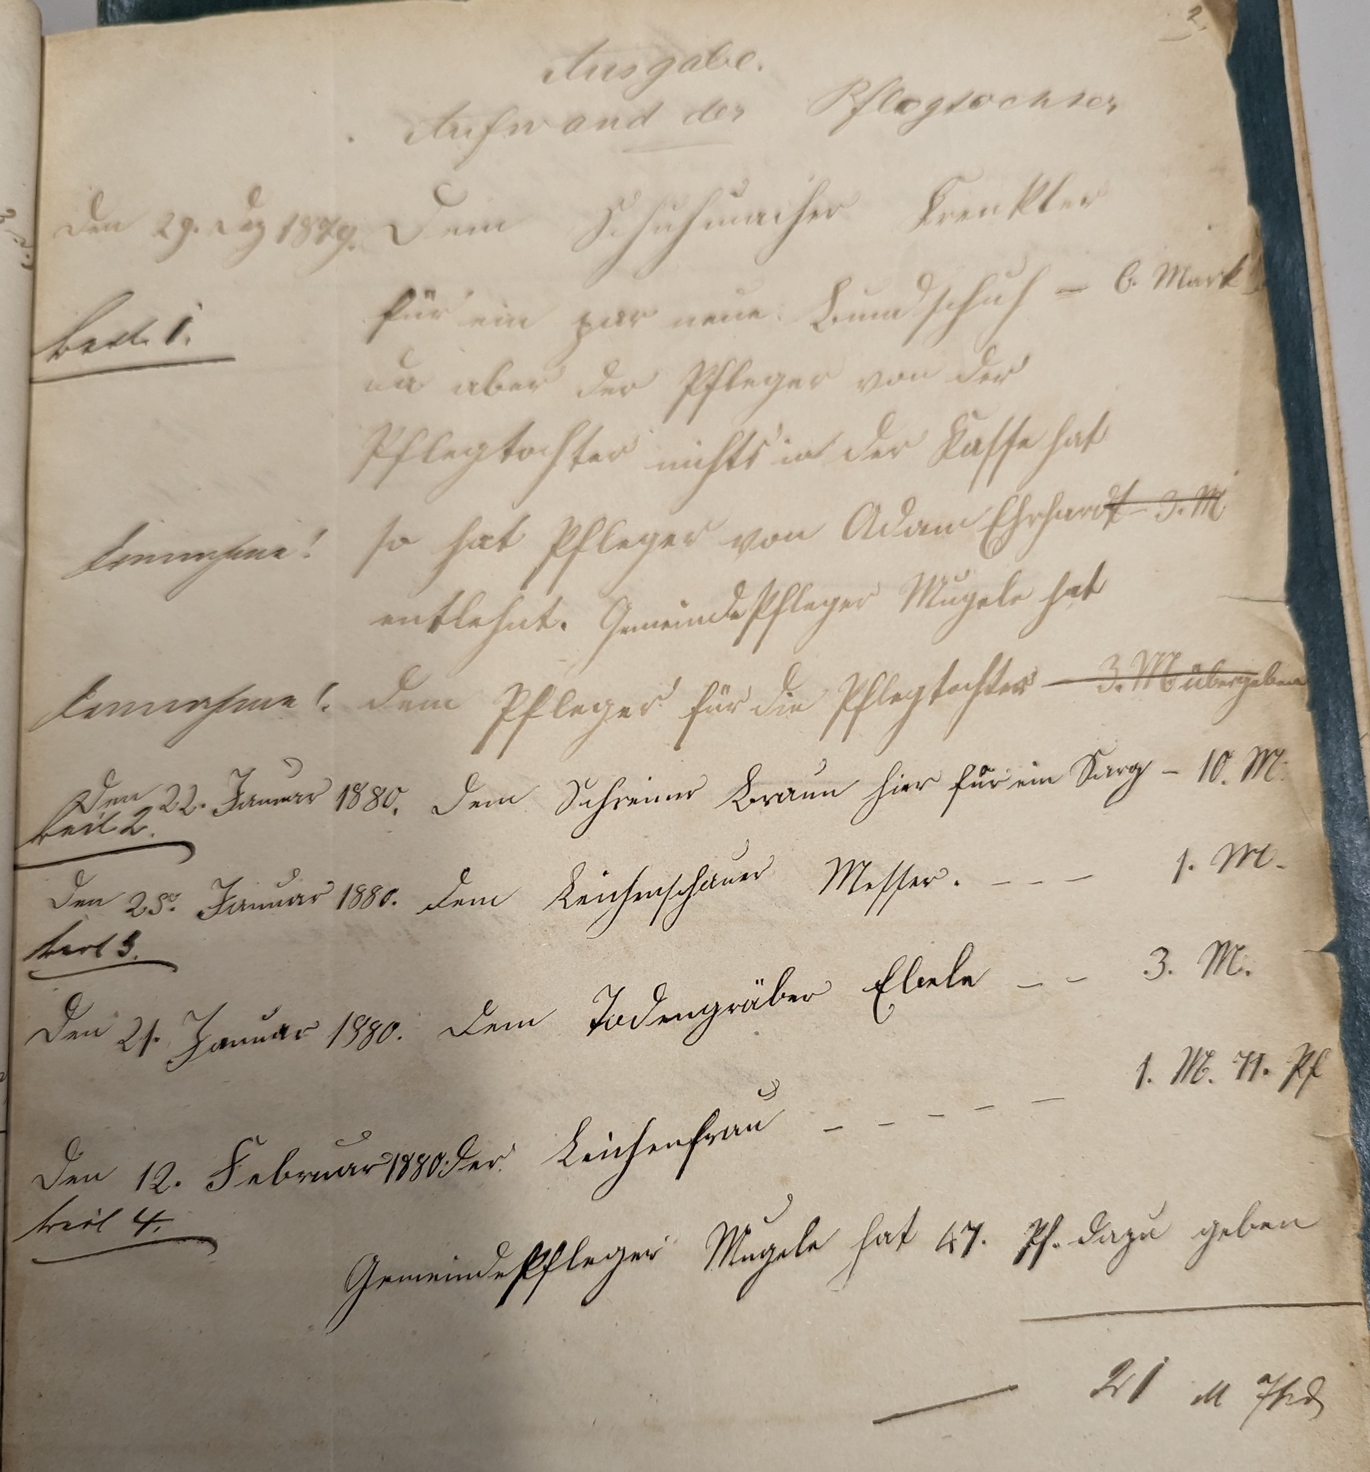 2.
Ausgabe.
Aufwand der Pflegtochter
Den 29. Dez 1879. Dem Schuhmacher Krenkler
für ein par neue Bundschuh – 6. Mark
Beil. 1.
da aber der Pfleger von der
Pflegtochter nichts in der Kasse hat
Einnahme! so hat Pfleger von Adam Ehrhardt 3. M
entlehnt. Gemeindepfleger Mugele hat
Einnahme! dem Pfleger für die Pflegtochter 3. M übergeben
Den 22. Januar 1880. Dem Schreiner Braun hier für ein Sarg – 10. M.
Beil 2.
Den 23. Januar 1880. dem Leichenschauer Messer. – – – 1. M.
Beil 3.
Den 21. Januar 1880. Dem Todengräber Ebele – – 3. M.
Den 12. Februar 1880. der Leichenfrau – – – – – 1. M. 71. Pf
Beil 4.
Gemeindepfleger Mugele hat 47. Pf. dazu geben
— 21 M 71